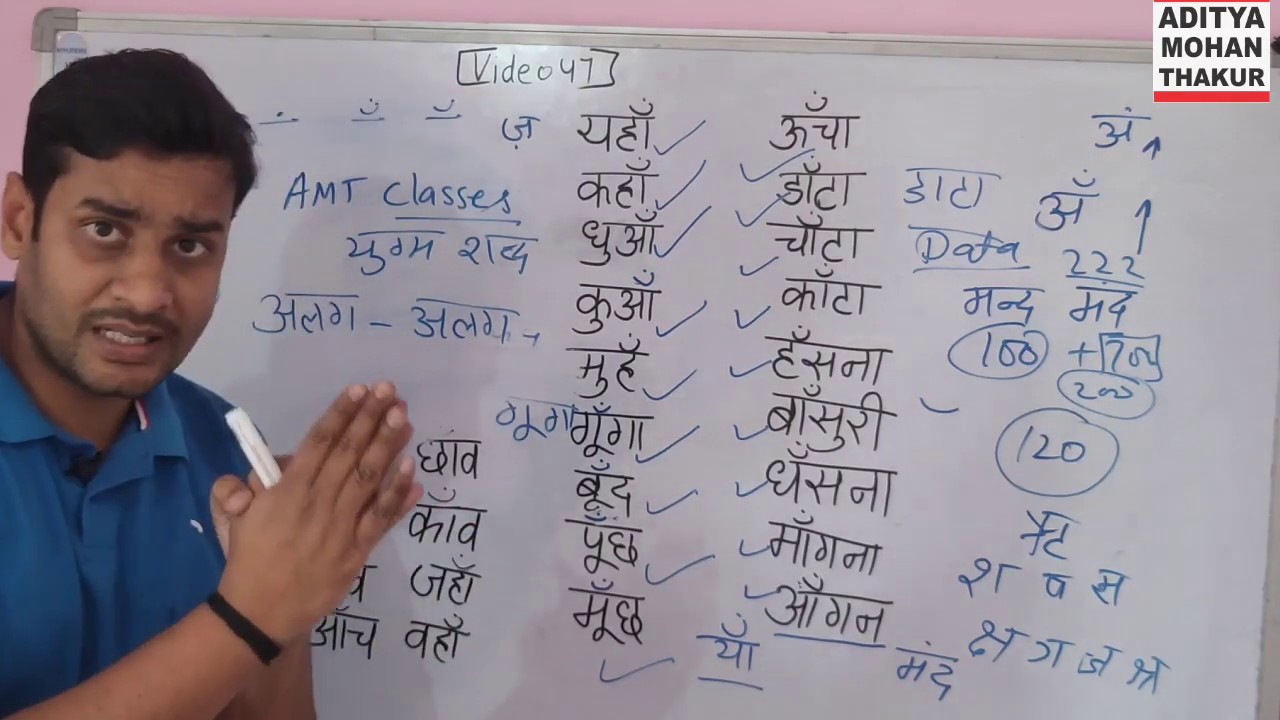 ADITYA
MOHAN
THAKUR
Video 47
ज़
AMT Classes
युग्म शब्द
अलग - अलग
गूगा
छाँव
काँव
जहाँ
आँच वहाँ
यहाँ
कहाँ
धुआँ
कुआँ
मुहँ
गूँगा
बूँद
पूँछ
मूँछ
ऊँचा
डाँटा
चाँटा
काँटा
हँसना
बाँसुरी
धँसना
माँगना
आँगन
याँ
मंद
अं
डाटा
अँ
Data
222
मन्द मंद
100 + 100
200
120
श ष स
क्ष त्र ज्ञ श्र